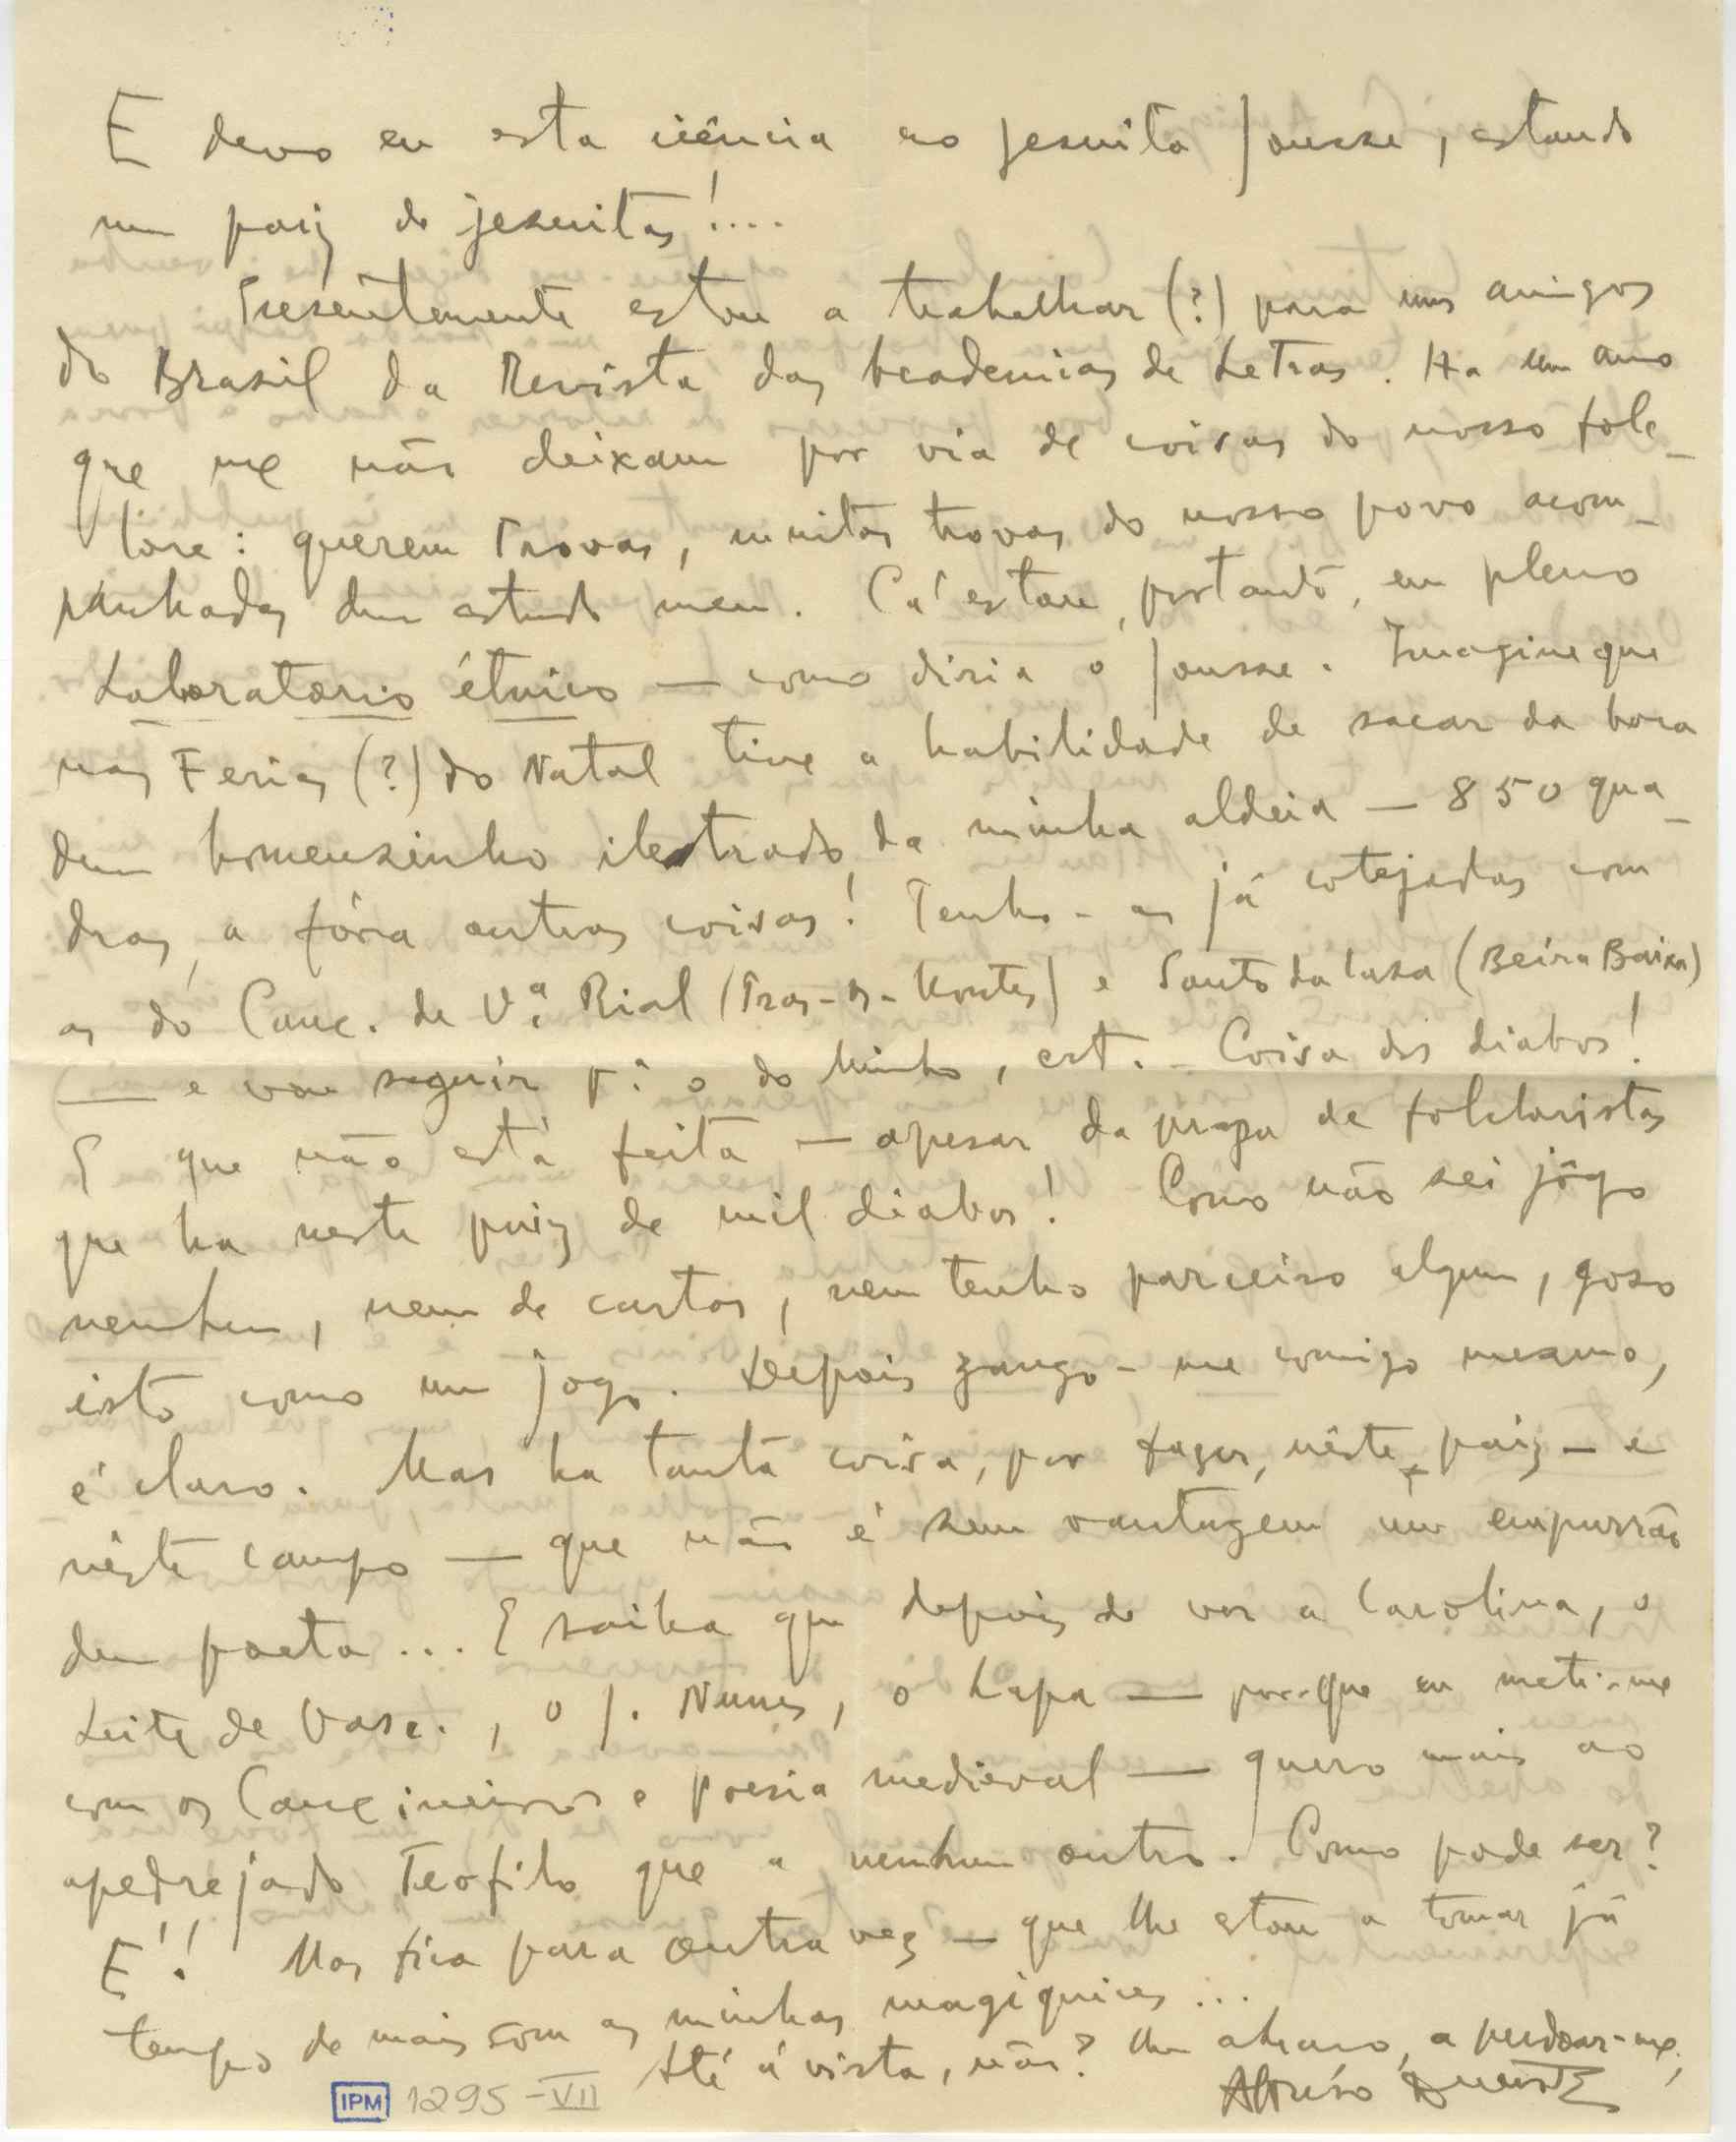 E devo eu esta ciência ao jesuita Jousse, estando
num paiz de jesuitas!....
Presentemente estou a trabalhar (?) para uns amigos
do Brasil da Revista das Academias de Letras. Ha um ano
que me não deixam por via de coisas do nosso fole-
lore: querem trovas, muitas trovas do nosso povo acom-
panhadas dum estudo meu. Cá estou, portanto, em pleno
Laboratorio étnico — como diria o Jousse. Imagine que
nas Ferias (?) do Natal tive a habilidade de sacar da boca
dum homensinho iletrado, da minha aldeia — 850 qua-
dras, a fóra outras coisas! Tenho-as já cotejadas com
as do Canc. de Vª Rial (Tras-os-Montes) e Santo da Casa (Beira Baixa)
— e vou seguir pª o do Minho, ect. — Coisa dos diabos!
E que não está feita — apesar da praga de folcloristas
que ha neste paiz de mil diabos! Como não sei jôgo
nenhum, nem de cartas, nem tenho parceiro algum, goso
isto como um jogo. Depois zango-me comigo mesmo,
é claro. Mas ha tanta coisa, por fazer, nêste paiz — e
nêste campo — que não é sem vantagem um empurrão
dum poeta... E saiba que depois de ver a Carolina, o
Leite de Vasc., o J. Nunes, o Lapa — por-que eu meti-me
com os Cancioneiros e poesia medieval — quero mais ao
apedrejado Teofilo que a nenhum outro. Como pode ser?
E'! Mas fica para outra vez — que lhe estou a tomar já
tempo de mais com as minhas magiquices...
Até á vista, não? Um abraço, a perdoar-me,
Afonso Duarte
IPM 1295-VII